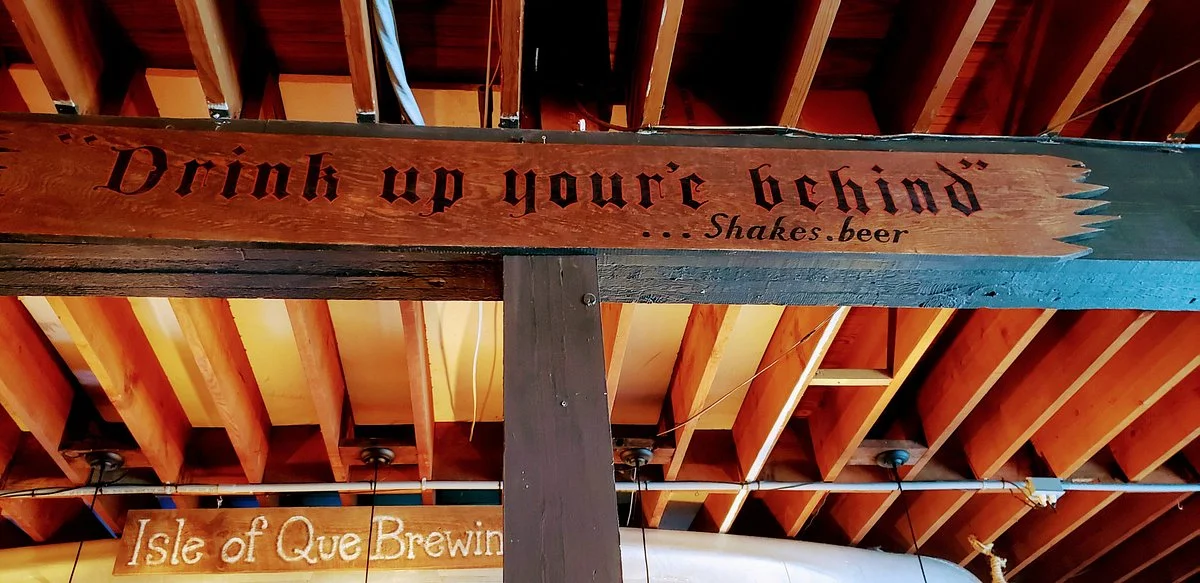 "Drink up your'e behind"
...Shakes.beer
Isle of Que Brewin